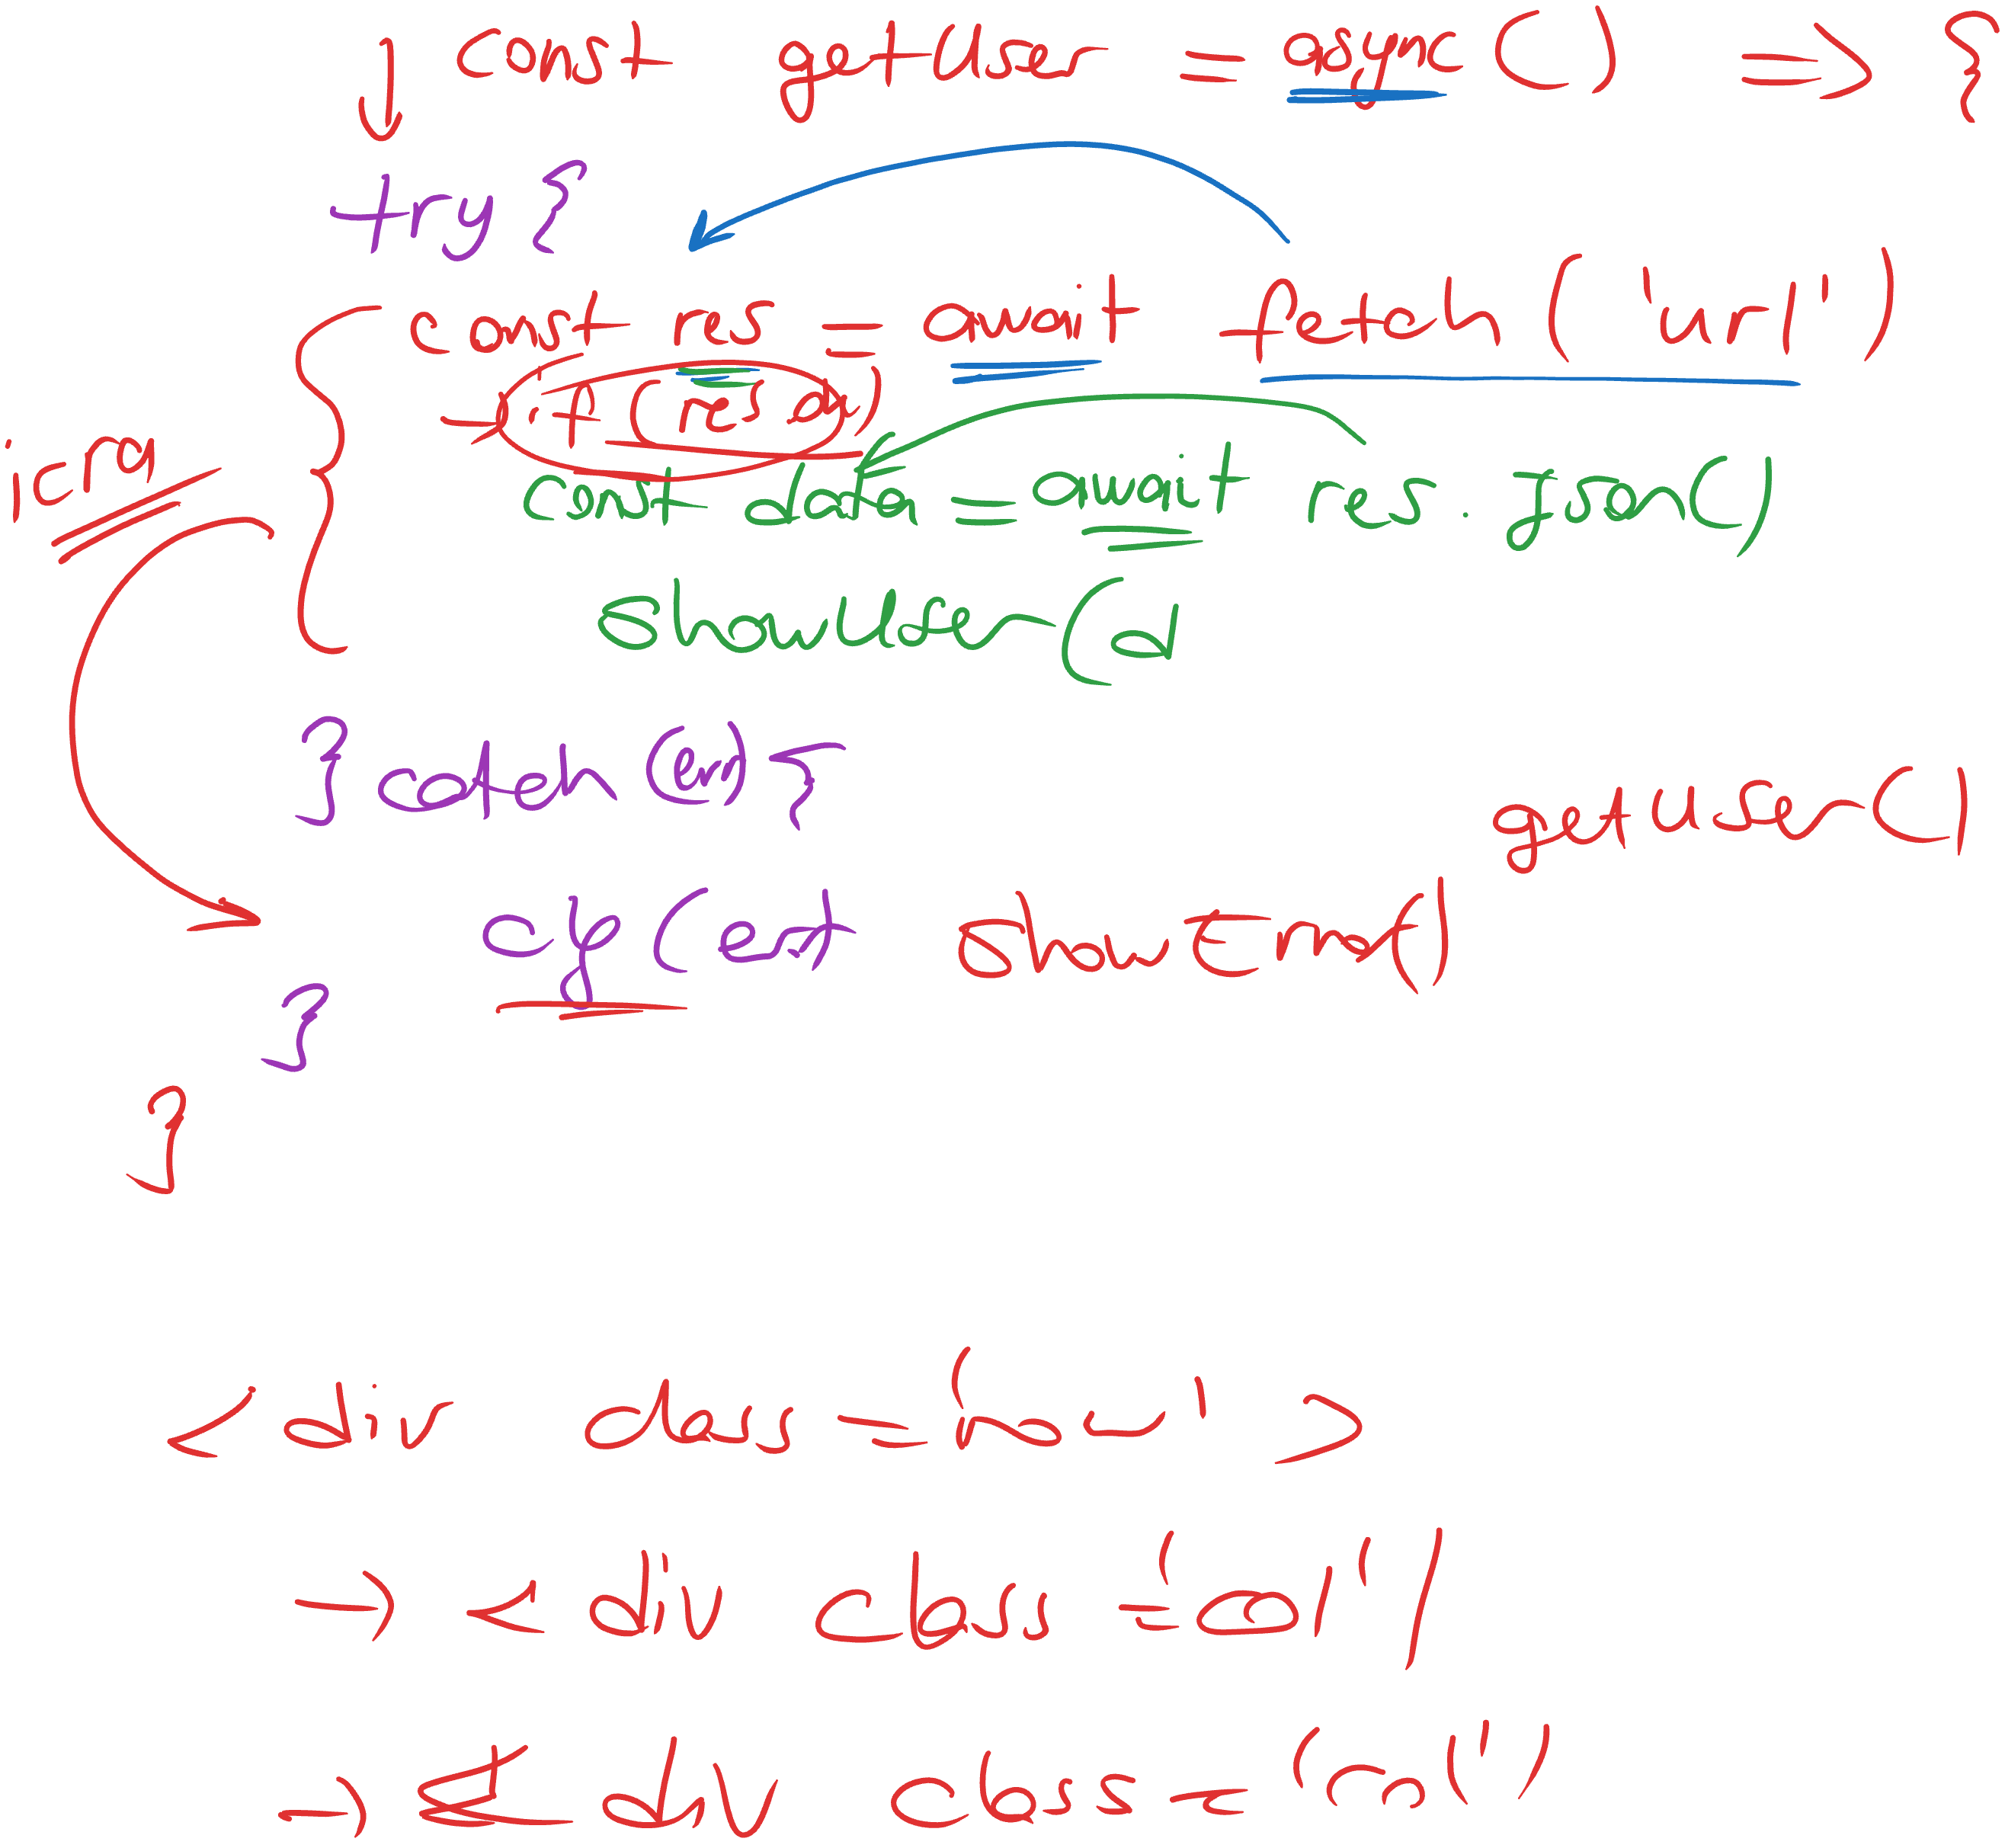 const getUser = async () => {
try {
const res = await fetch('url')
if (res.ok)
icra
const data = await res.json()
showUser(d
} catch (err) {
getUser()
(err) showError()
}
}
<div class='row'>
→ <div class='col'
→ < div class='col'